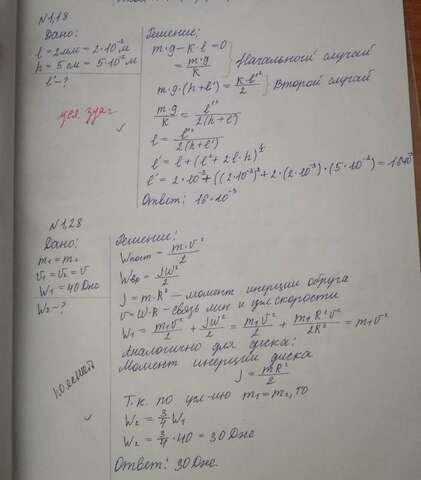 N1,18
Дано:
l = 2мм = 2·10⁻³м
h = 5 см = 5·10⁻²м
l' - ?
Решение:
m·g - k·l = 0
= m·g/k } Начальный случай
m·g·(h+l') = k·l'²/2 } Второй случай
m·g/k = l'²/2(h+l')
l = l'²/2(h+l')
l' = l + (l² + 2l·h)^½
l' = 2·10⁻³ + ((2·10⁻³)² + 2·(2·10⁻³)·(5·10⁻²) = 16·10⁻³
Ответ: 16·10⁻³
N1,28
Дано:
m₁ = m₂
v₁ = v₂ = v
W₁ = 40 Дж
W₂ - ?
Решение:
Wпост = m·v²/2
Wвр = JW²/2
J = m·R² - момент инерции обруча
v = W·R - связь лин и угл скорости
W₁ = m₁v²/2 + JW²/2 = m₁v²/2 + m₁R²v²/2R² = m₁v²
Аналогично для диска:
Момент инерции диска
J = mR²/2
Т.к. по усл-ию m₁ = m₂, то
W₂ = 3/4 W₁
W₂ = 3/4 · 40 = 30 Дж
Ответ: 30 Дж.